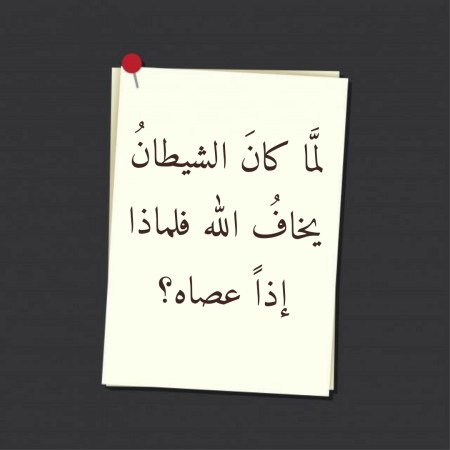 لمَّا كانَ الشيطانُ
يخافُ الله فلماذا
إذاً عصاه؟